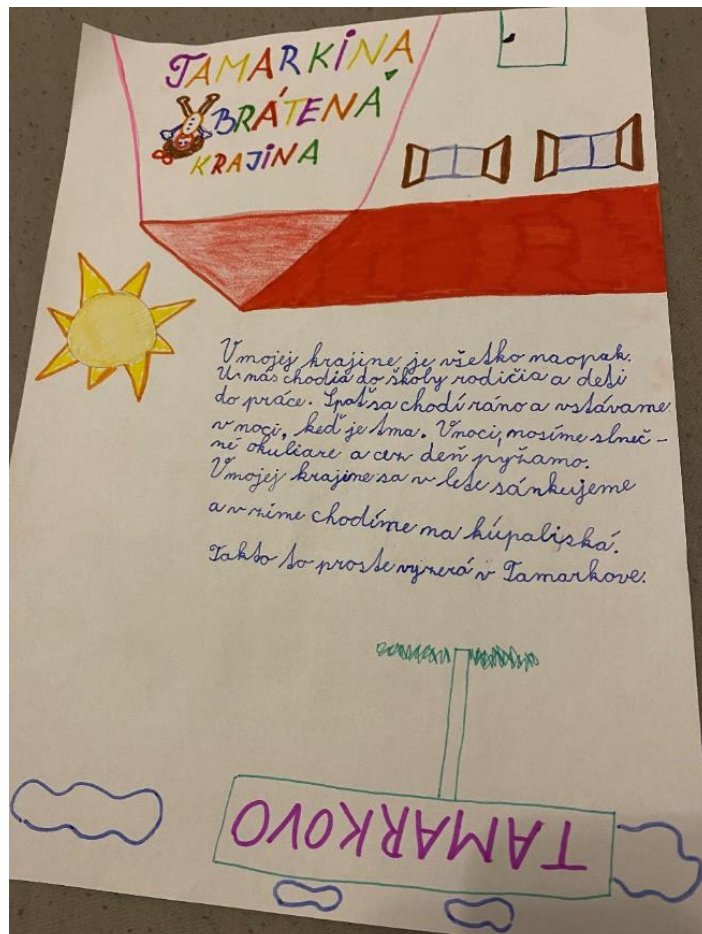 TAMARKINA
OBRÁTENÁ
KRAJINA
V mojej krajine je všetko naopak.
U nás chodia do školy rodičia a deti
do práce. Spať sa chodí ráno a vstávame
v noci, keď je tma. V noci, nosíme slneč-
né okuliare a cez deň pyžamo.
V mojej krajine sa v lete sánkujeme
a v zime chodíme na kúpaliská.
Takto to proste vyzerá v Tamarkove.
TAMARKOVO